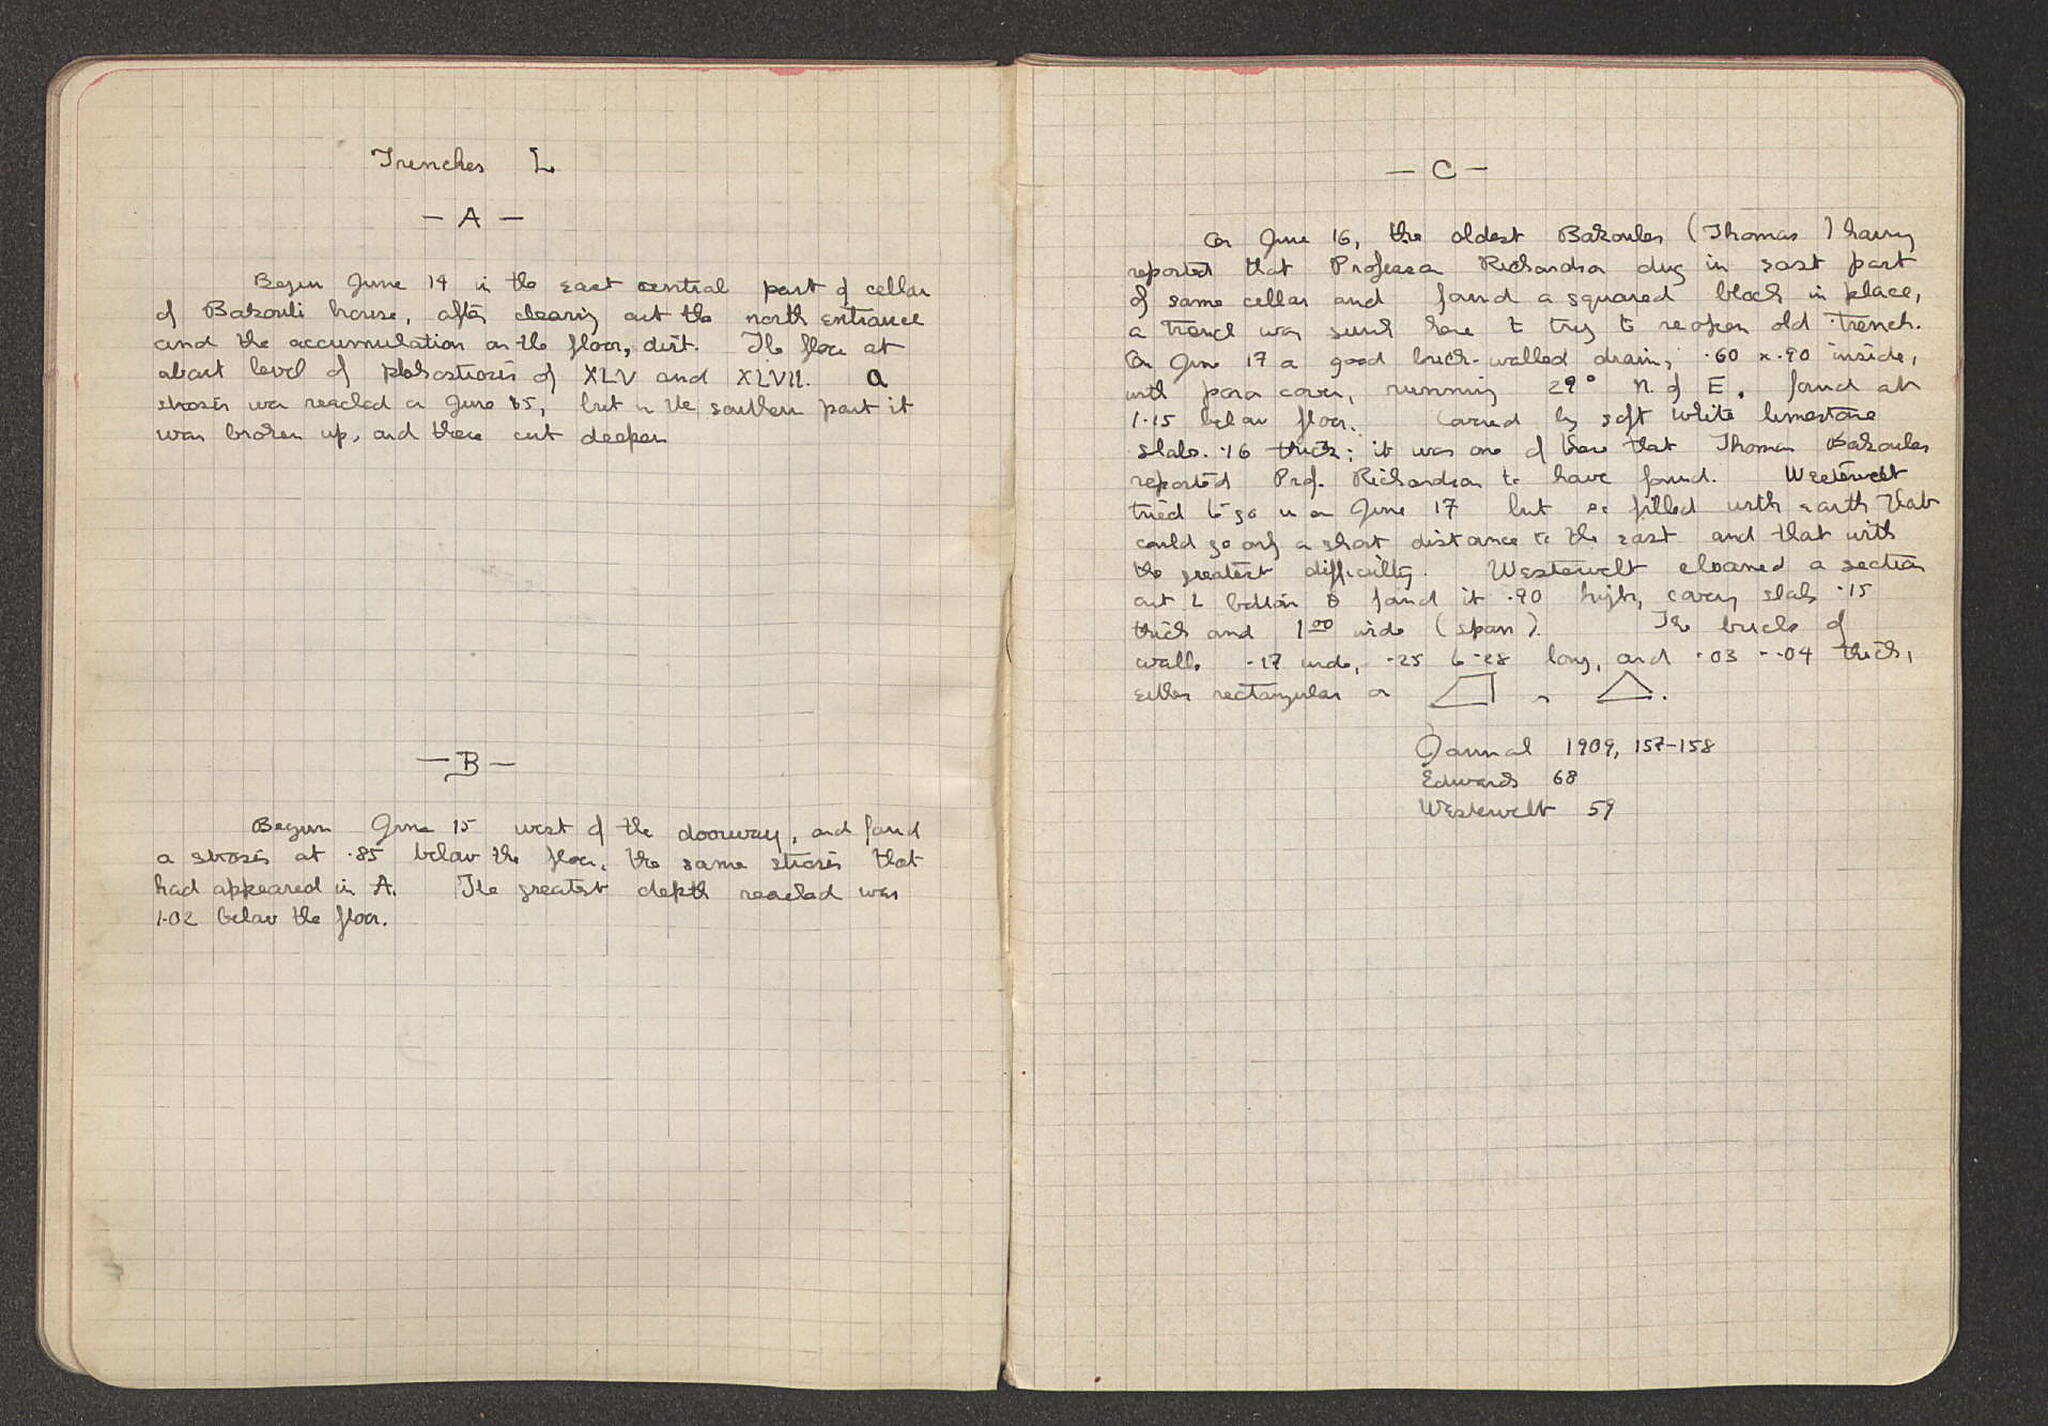 Trenches L
— A —
Begun June 14 in the east central part of cellar
of Bakouli house, after clearing out the north entrance
and the accumulation on the floor, dirt. The floor at
about level of plakostrosis of XLV and XLVII. a
strosis was reached on June 15, but in the southern part it
was broken up, and there cut deeper
— B —
Begun June 15 west of the doorway, and found
a strosis at .85 below the floor, the same strosis that
had appeared in A. The greatest depth reached was
1.02 below the floor.
— C —
On June 16, the oldest Bakoules (Thomas) having
reported that Professor Richardson dug in east part
of same cellar and found a squared block in place,
a trench was sunk here to try to reopen old trench.
On June 17 a good brick-walled drain, .60 x .90 inside,
with poros cover, running 29° N. of E. found at
1.15 below floor. Covered by soft white limestone
slabs .16 thick; it was one of these that Thomas Bakoules
reported Prof. Richardson to have found. Westervelt
tried to go in on June 17 but so filled with earth that
could go only a short distance to the east and that with
the greatest difficulty. Westervelt cleaned a section
out to bottom & found it .90 high, cover slabs .15
thick and 1.00 wide (span). The bricks of
walls .17 wide, .25 to .28 long, and .03 - .04 thick,
either rectangular or or .
Journal 1909, 157-158
Edwards 68
Westervelt 59